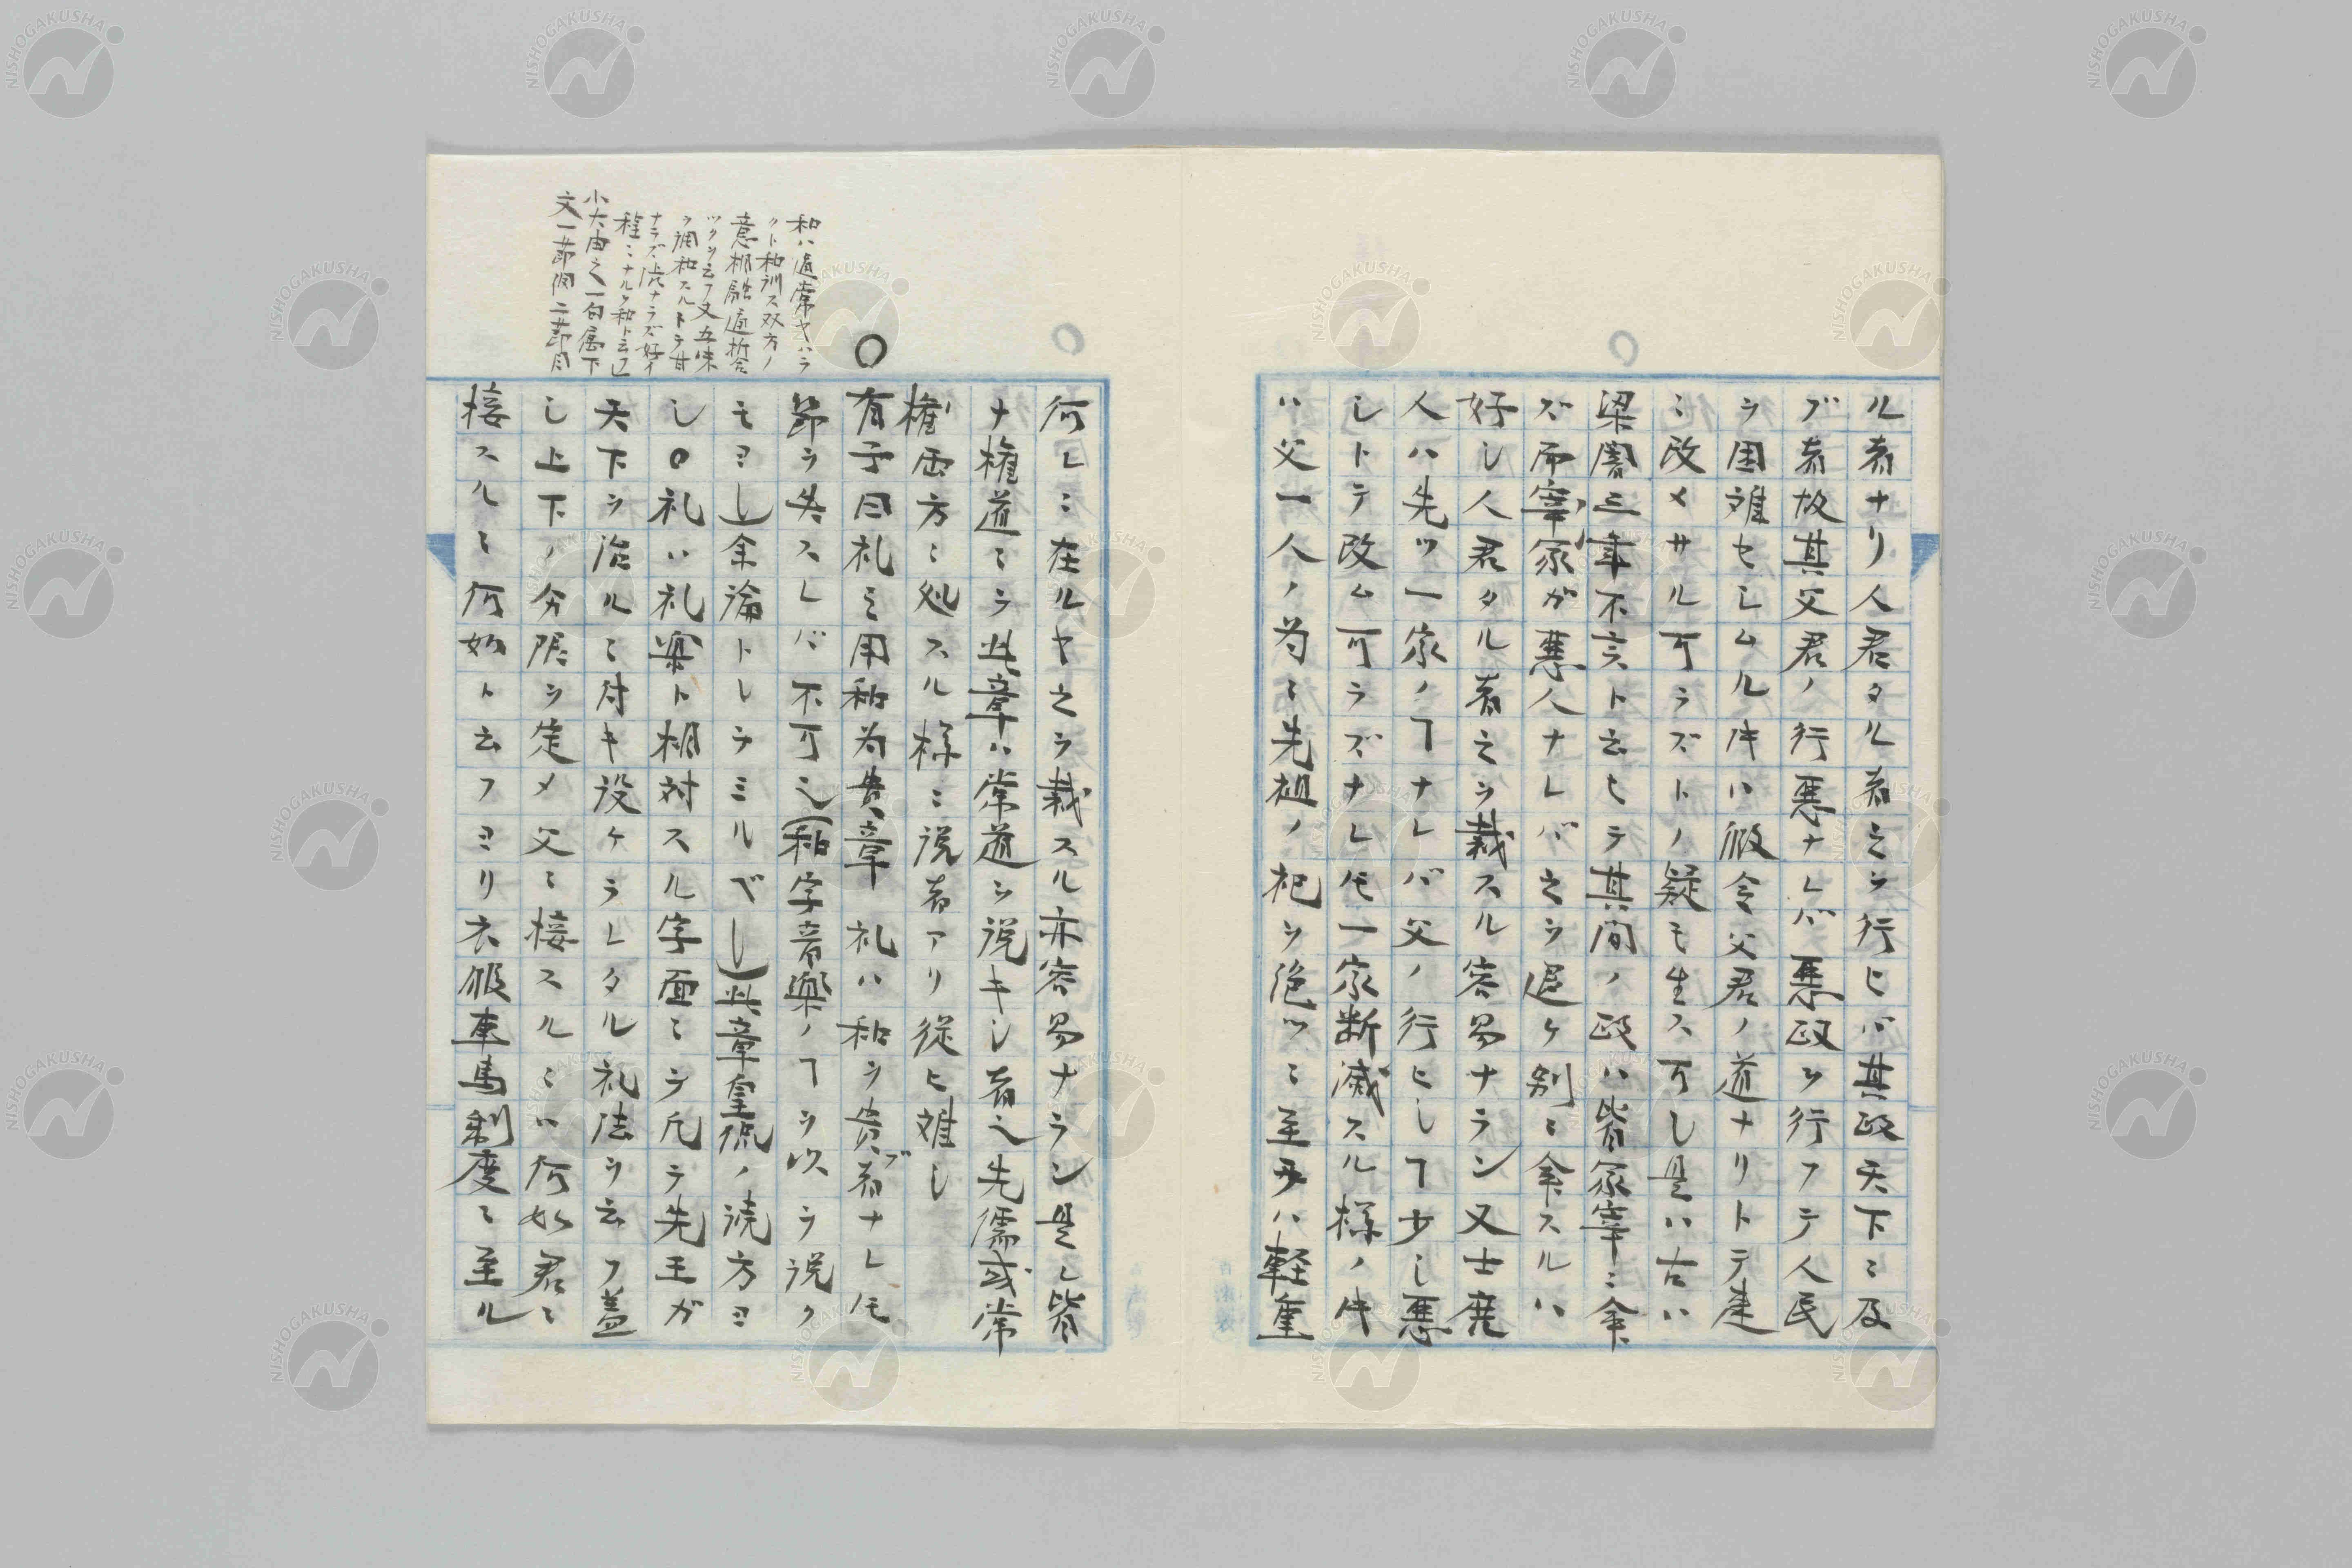 ル者ナリ人君タル者之ヲ行ヒバ其政天下ニ及
ブ者故其父君ノ行悪ナレバ悪政ヲ行フテ人民
ヲ困難セシムル𪜈ハ仮令父君ノ道ナリトテ建
ニ改メサル可ラズトノ疑モ生ス可し是ハ古ハ
梁闇三年不言ト云ヒテ其間ノ政ハ皆冡宰ニ命
ズ而宰冡ガ悪人ナレバ之ヲ退ケ別ニ命スルハ
好し人君タル者之ヲ裁スル容易ナラン又士庶
人ハ先ツ一家ノヿナレバ父ノ行ヒしヿ少しニ悪
しトテ改ム可ラズナレ𪜈一家断滅スル様ノ𪜈
ハ父一人ノ为ニ先祖ノ祀ヲ絶ツニ至ヲハ軽重
何レニ在ルヤ之ヲ裁スル亦容易ナラン是レ皆
ナ権道ニヲ此章ハ常道ヲ説キし者之先儒或常
権両方ニ処スル様ニ説者アリ従ヒ難し
有子曰礼之用和为貴章 礼ハ和ヲ貴ブ者ナレ𪜈
節ヲ失スレバ不可之(和字音楽ノヿヲ以ヲ説ク
モヨし)余論トしテミルベし)此章皇侃ノ読方ヨ
し〇礼ハ礼楽ト相対スル字面ニヲ凡テ先王ガ
天下ヲ治ルニ付キ設ケラレタル礼法ヲ云フ蓋
し上下ノ分限ヲ定メ父ニ接スルニハ何如君ニ
接スルニ何如ト云フヨリ衣服車馬制度ニ至ル
和ハ適常ヤハラ
クト和訓ス双方ノ
意相融通折合
ツクヲ云フ又五味
ヲ調和スルトテ甘
ナラズ鹹ナラズ好イ
程ニナルヲ和ト云フ
小大由之一句属下
文一節例二節目